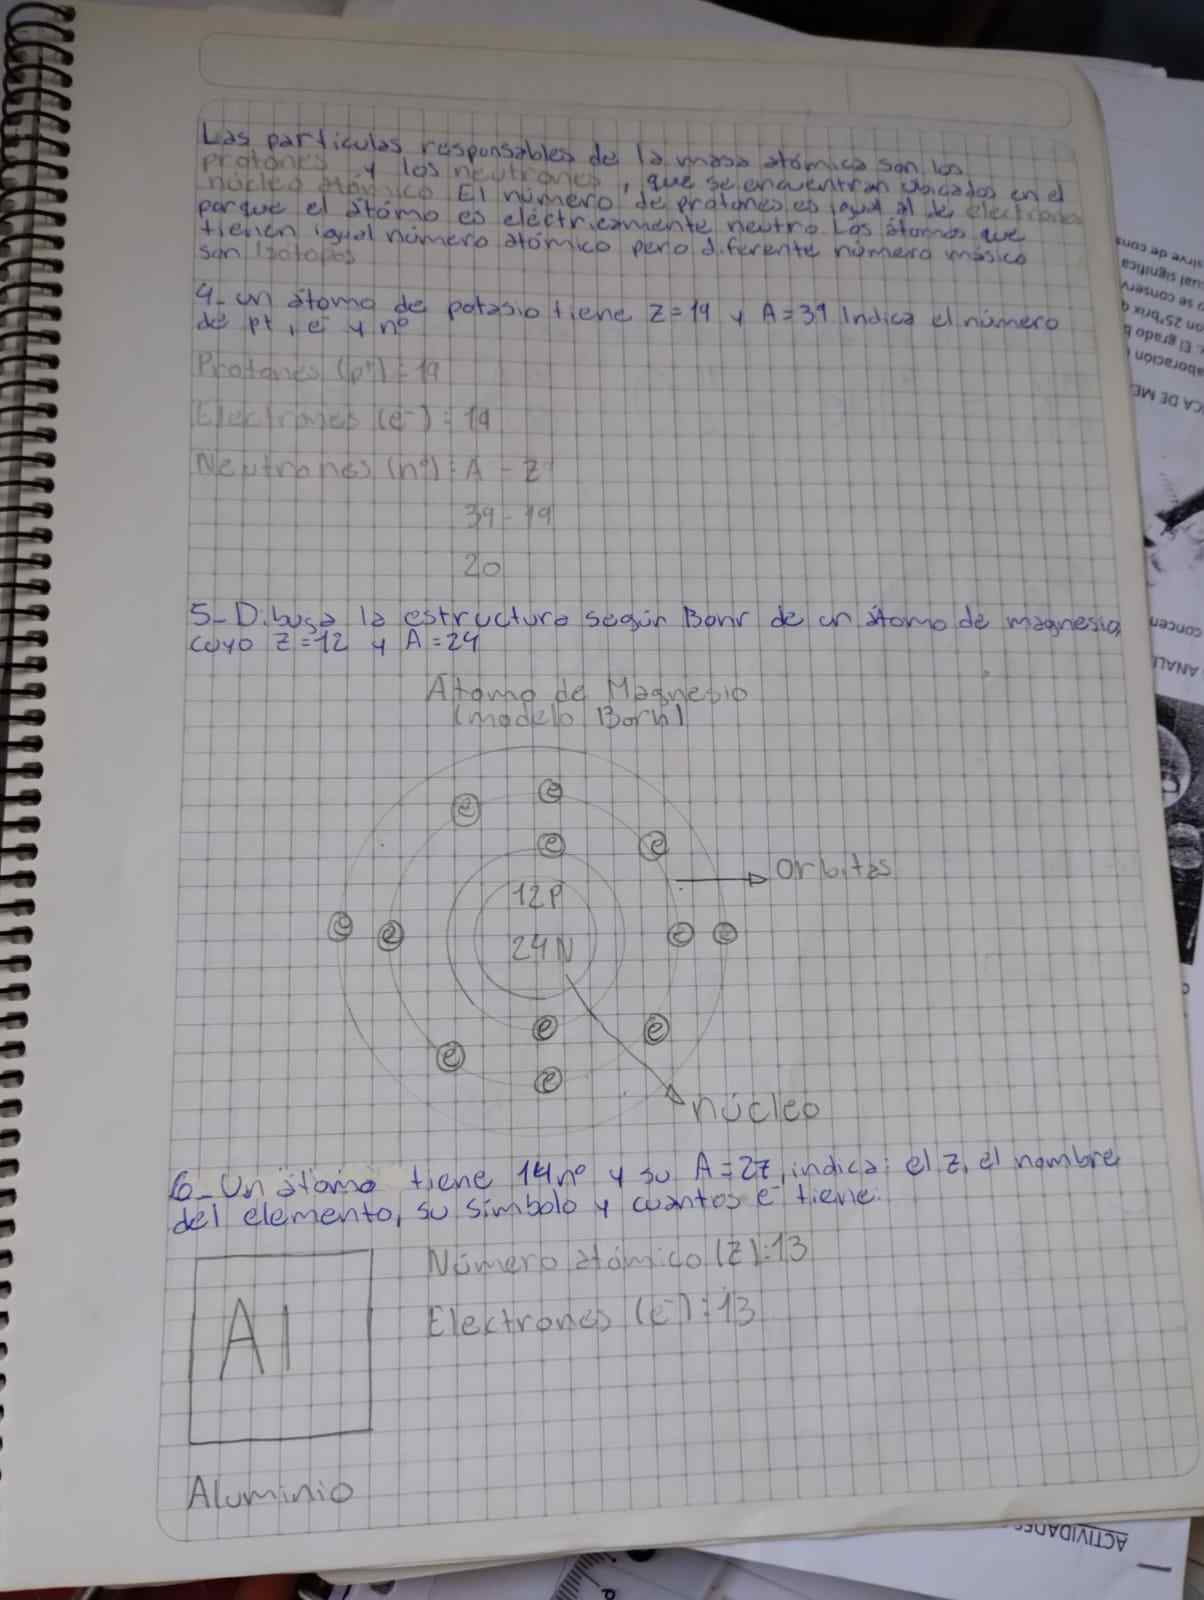 Las particulas responsables de la masa atómica son los
protones y los neutrones, que se encuentran ubicados en el
núcleo atómico El número de protones es igual al de electrones
porque el átomo es eléctricamente neutro. Los átomos que
tienen igual número atómico pero diferente número másico
son Isotopos
4- un átomo de potasio tiene Z=19 y A=39 Indica el número
de p+, e⁻ y n°
Protones (p⁺) = 19
Electrones (e⁻) = 19
Neutrones (n°): A - Z
39 - 19
20
5- Dibuja la estructura según Bohr de un átomo de magnesio
cuyo Z=12 y A=24
Atomo de Magnesio
(modelo Borh)
e
e
e
e
12P
orbitas
e
e
24N
e
e
e
e
e
e
núcleo
6- Un átomo tiene 14n° y su A=27, indica: el Z, el nombre
del elemento, su símbolo y cuantos e⁻ tiene:
Número atómico (Z):13
Al
Elektrones (e⁻):13
Aluminio
sirve de cons
cual significa
o se conserv
on 25°brix q
. El grado b
aboración
ICA DE ME
concen
ANALI
ACTIVIDADES